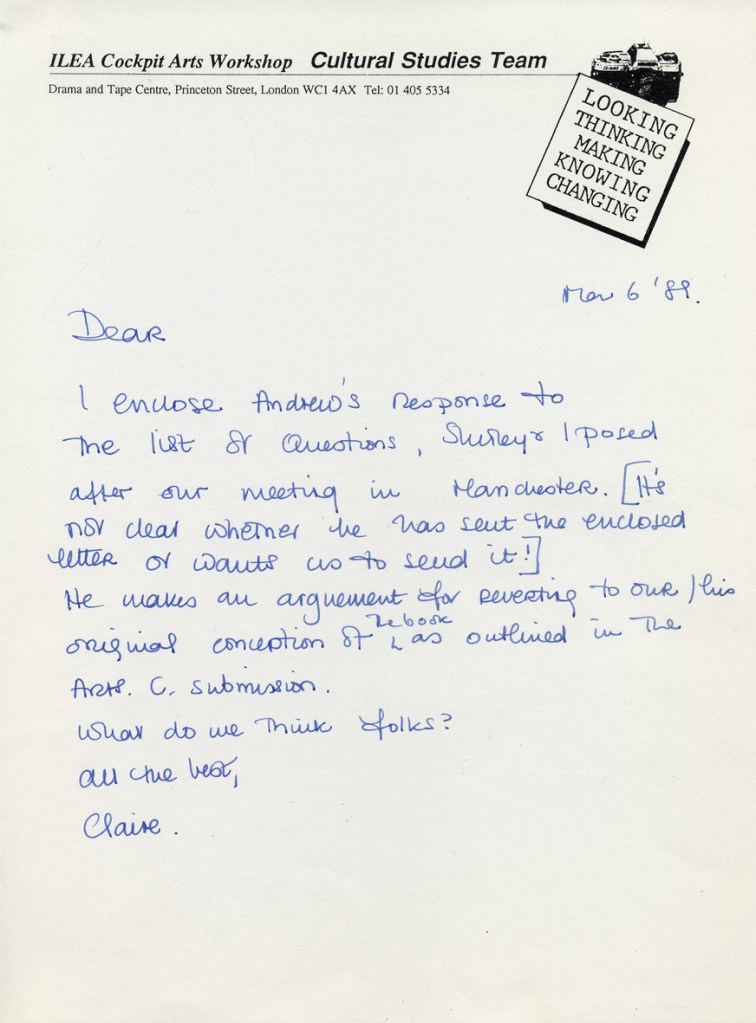 ILEA Cockpit Arts Workshop Cultural Studies Team
Drama and Tape Centre, Princeton Street, London WC1 4AX Tel: 01 405 5334
LOOKING
THINKING
MAKING
KNOWING
CHANGING
Mar 6 '89.
Dear
I enclose Andrew's response to
the list of Questions, Shirley & I posed
after our meeting in Manchester. [It's
not clear whether he has sent the enclosed
letter or wants us to send it!]
He makes an arguement for reverting to our / his
original conception of the book as outlined in the
Arts. C. submission.
What do we think folks?
all the best,
Claire.